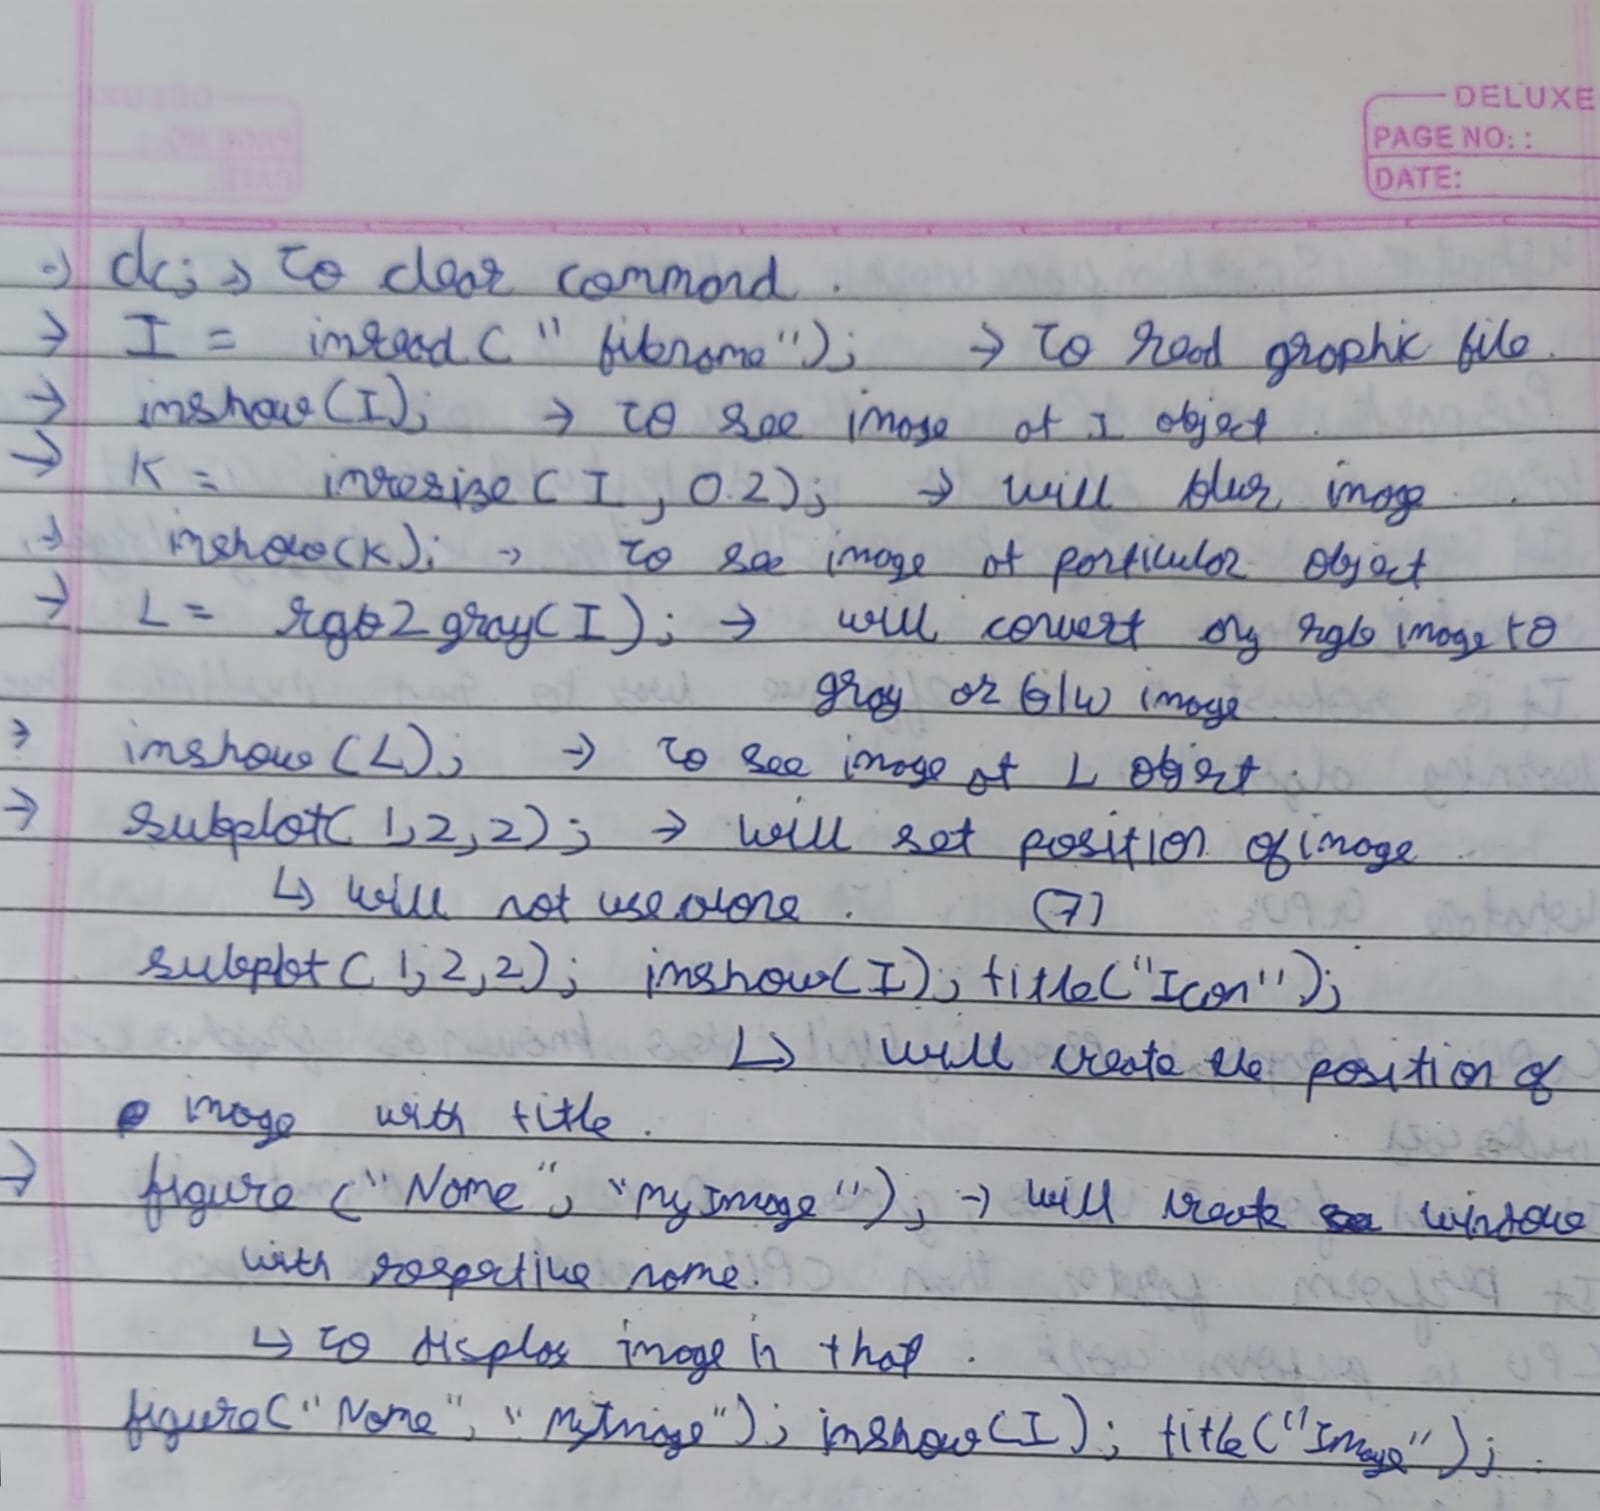 DELUXE
PAGE NO: :
DATE:
→ clc; → To clear command.
→ I = imread ("filename"); → To read graphic file.
→ imshow(I); → To see image at I object.
→ K = imresize(I, 0.2); → will blur image.
→ imshow(K); → To see image at particular object
→ L = rgb2gray(I); → will convert any rgb image to
gray or B/W image
→ imshow(L); → To see image at L object.
→ subplot(1,2,2); → will set position of image
↳ will not use alone. (7)
subplot(1,2,2); imshow(I); title("Icon");
↳ will create the position of
image with title.
→ figure ("Name", "MyImage"); → will create window
with respective name.
↳ To display image in that.
figure("Name", "MyImage"); imshow(I); title("Image");